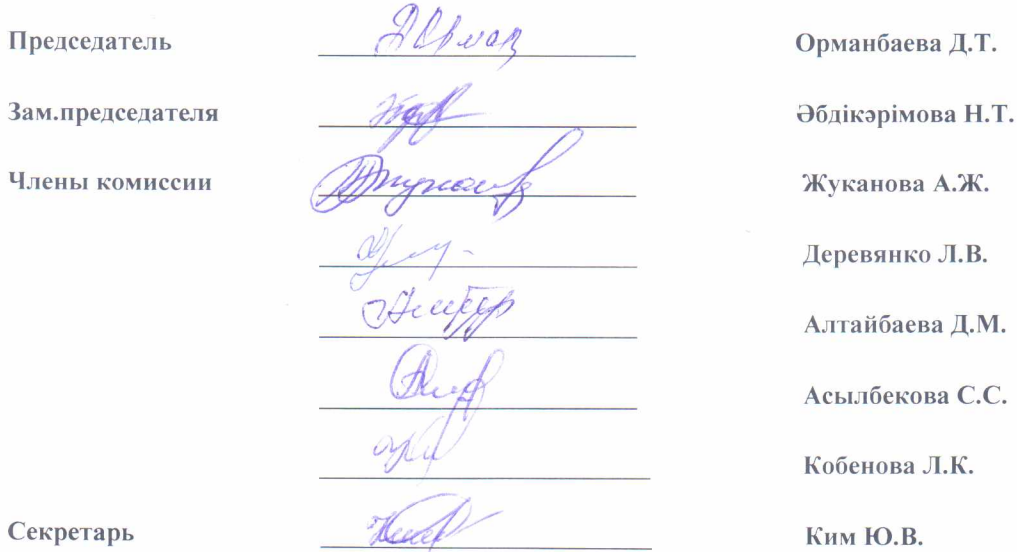 Председатель Орманбаева Д.Т.
Зам.председателя Әбдікәрімова Н.Т.
Члены комиссии Жуканова А.Ж.
Деревянко Л.В.
Алтайбаева Д.М.
Асылбекова С.С.
Кобенова Л.К.
Секретарь Ким Ю.В.